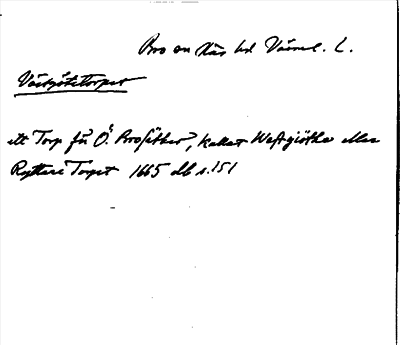 Bro sn Näs hd Värml. L.
Västgötetorpet
ett Torp på Ö. Brosätter, kallat Westgiötha eller
Ryttare Torpet 1665 db s. 151